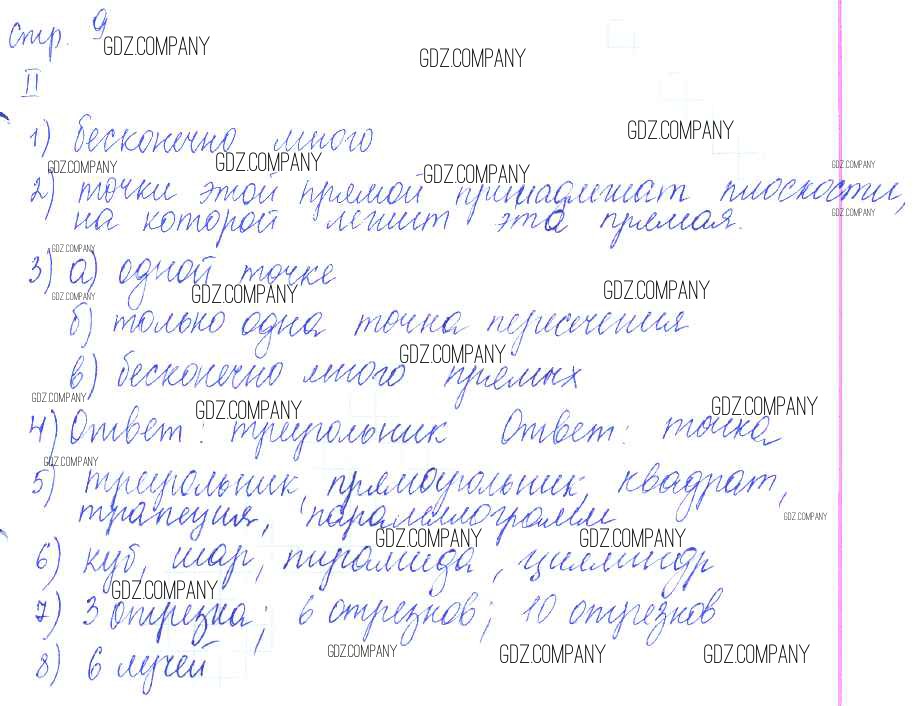 стр. 9
GDZ.COMPANY
GDZ.COMPANY
II
1) бесконечно много
GDZ.COMPANY
GDZ.COMPANY
GDZ.COMPANY
GDZ.COMPANY
GDZ.COMPANY
2) точки этой прямой принадлежат плоскости,
на которой лежит эта прямая.
GDZ.COMPANY
GDZ.COMPANY
3) а) одной точке
GDZ.COMPANY
GDZ.COMPANY
GDZ.COMPANY
б) только одна точка пересечения
GDZ.COMPANY
в) бесконечно много прямых
GDZ.COMPANY
GDZ.COMPANY
GDZ.COMPANY
4) Ответ: треугольник Ответ: точка
GDZ.COMPANY
5) треугольник, прямоугольник, квадрат,
трапеция, параллелограмм
GDZ.COMPANY
GDZ.COMPANY
GDZ.COMPANY
6) куб, шар, пирамида, цилиндр
GDZ.COMPANY
7) 3 отрезка; 6 отрезков; 10 отрезков
8) 6 лучей
GDZ.COMPANY
GDZ.COMPANY
GDZ.COMPANY